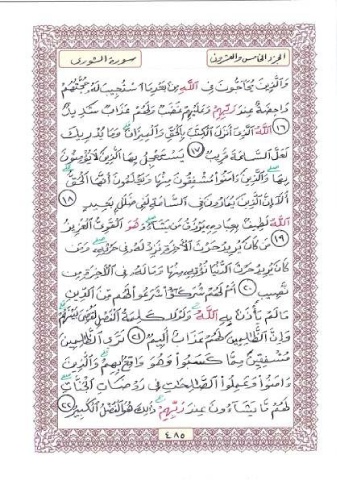 الجزء الخامس والعشرون
سورة الشورى
وَالَّذِينَ يُحَاجُّونَ فِي اللَّهِ مِنْ بَعْدِ مَا اسْتُجِيبَ لَهُ حُجَّتُهُمْ
دَاحِضَةٌ عِنْدَ رَبِّهِمْ وَعَلَيْهِمْ غَضَبٌ وَلَهُمْ عَذَابٌ شَدِيدٌ
١٦ اللَّهُ الَّذِي أَنْزَلَ الْكِتَٰبَ بِالْحَقِّ وَالْمِيزَانَ وَمَا يُدْرِيكَ
لَعَلَّ السَّاعَةَ قَرِيبٌ ١٧ يَسْتَعْجِلُ بِهَا الَّذِينَ لَا يُؤْمِنُونَ
بِهَا وَالَّذِينَ ءَامَنُوا مُشْفِقُونَ مِنْهَا وَيَعْلَمُونَ أَنَّهَا الْحَقُّ
أَلَا إِنَّ الَّذِينَ يُمَارُونَ فِي السَّاعَةِ لَفِي ضَلَٰلٍ بَعِيدٍ ١٨
اللَّهُ لَطِيفٌ بِعِبَادِهِ يَرْزُقُ مَنْ يَشَاءُ وَهُوَ الْقَوِيُّ الْعَزِيزُ
١٩ مَنْ كَانَ يُرِيدُ حَرْثَ الْآخِرَةِ نَزِدْ لَهُ فِي حَرْثِهِ وَمَنْ
كَانَ يُرِيدُ حَرْثَ الدُّنْيَا نُؤْتِهِ مِنْهَا وَمَا لَهُ فِي الْآخِرَةِ مِنْ
نَصِيبٍ ٢٠ أَمْ لَهُمْ شُرَكَٰؤُا شَرَعُوا لَهُمْ مِنَ الدِّينِ
مَا لَمْ يَأْذَنْ بِهِ اللَّهُ وَلَوْلَا كَلِمَةُ الْفَصْلِ لَقُضِيَ بَيْنَهُمْ
وَإِنَّ الظَّٰلِمِينَ لَهُمْ عَذَابٌ أَلِيمٌ ٢١ تَرَى الظَّٰلِمِينَ
مُشْفِقِينَ مِمَّا كَسَبُوا وَهُوَ وَاقِعٌ بِهِمْ وَالَّذِينَ
ءَامَنُوا وَعَمِلُوا الصَّٰلِحَٰتِ فِي رَوْضَاتِ الْجَنَّاتِ
لَهُمْ مَا يَشَاءُونَ عِنْدَ رَبِّهِمْ ذَٰلِكَ هُوَ الْفَضْلُ الْكَبِيرُ ٢٢
٤٨٥